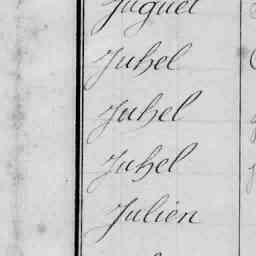 Juguet
Juhel
Juhel
Juhel
Julien